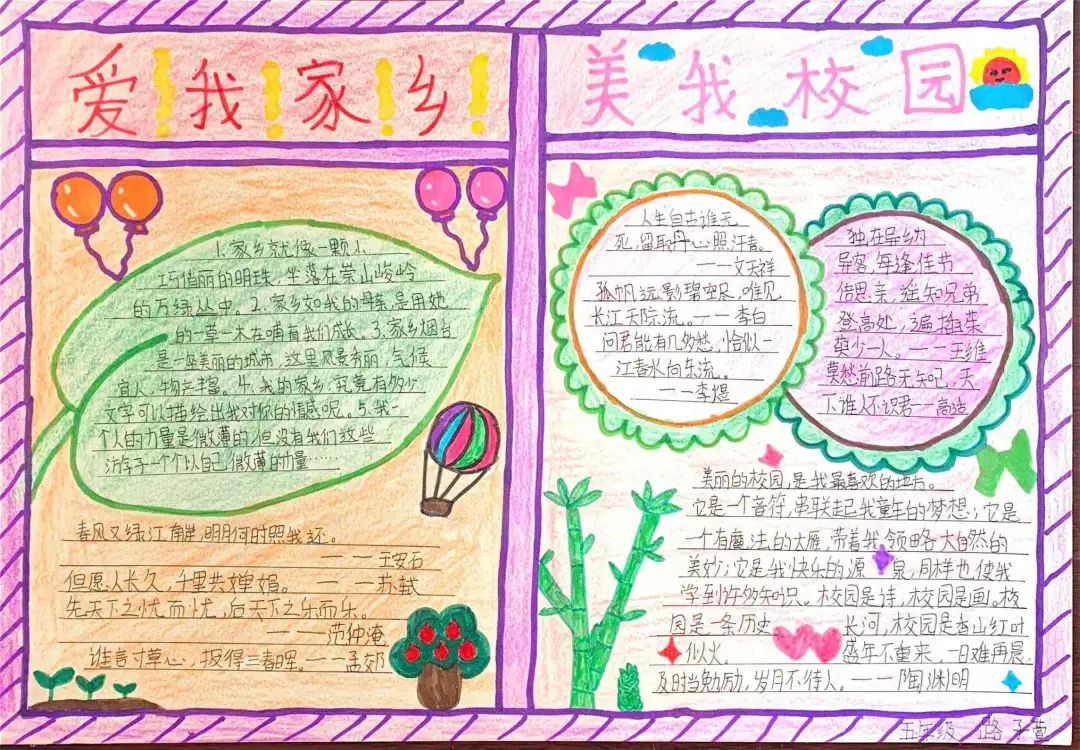 爱！我！家！乡！
美我校园
1.家乡就像一颗小
巧俏丽的明珠，坐落在崇山峻岭
的万绿丛中。2.家乡如我的母亲，是用她
的一草一木在哺育我们成长。3.家乡烟台
是一座美丽的城市，这里风景秀丽，气候
宜人，物产丰富。4.我的家乡，究竟有多少
文字可以描绘出我对你的情感呢。5.我一
个人的力量是微薄的，但没有我们这些
一个个以自己微薄的力量……
春风又绿江南岸，明月何时照我还。
——王安石
但愿人长久，千里共婵娟。——苏轼
先天下之忧而忧，后天下之乐而乐。
———范仲淹
谁言寸草心，报得三春晖。——孟郊
人生自古谁无
死，留取丹心照汗青。
——文天祥
孤帆远影碧空尽，唯见
长江天际流。——李白
问君能有几多愁，恰似一
江春水向东流。
——李煜
独在异乡为
异客，每逢佳节
倍思亲，遥知兄弟
登高处，遍插茱
萸少一人。——王维
莫愁前路无知己，天
下谁人不识君——高适
美丽的校园，是我最喜欢的地方。
它是一个音符，串联起我童年的梦想；它是
一个有魔法的大雁，带着我领略大自然的
美妙；它是我快乐的源泉，同样也使我
学到许多知识。校园是诗，校园是画。校
园是一条历史长河，校园是香山红叶
似火。盛年不重来，一日难再晨。
及时当勉励，岁月不待人。——陶渊明
五年级 一 路子萱